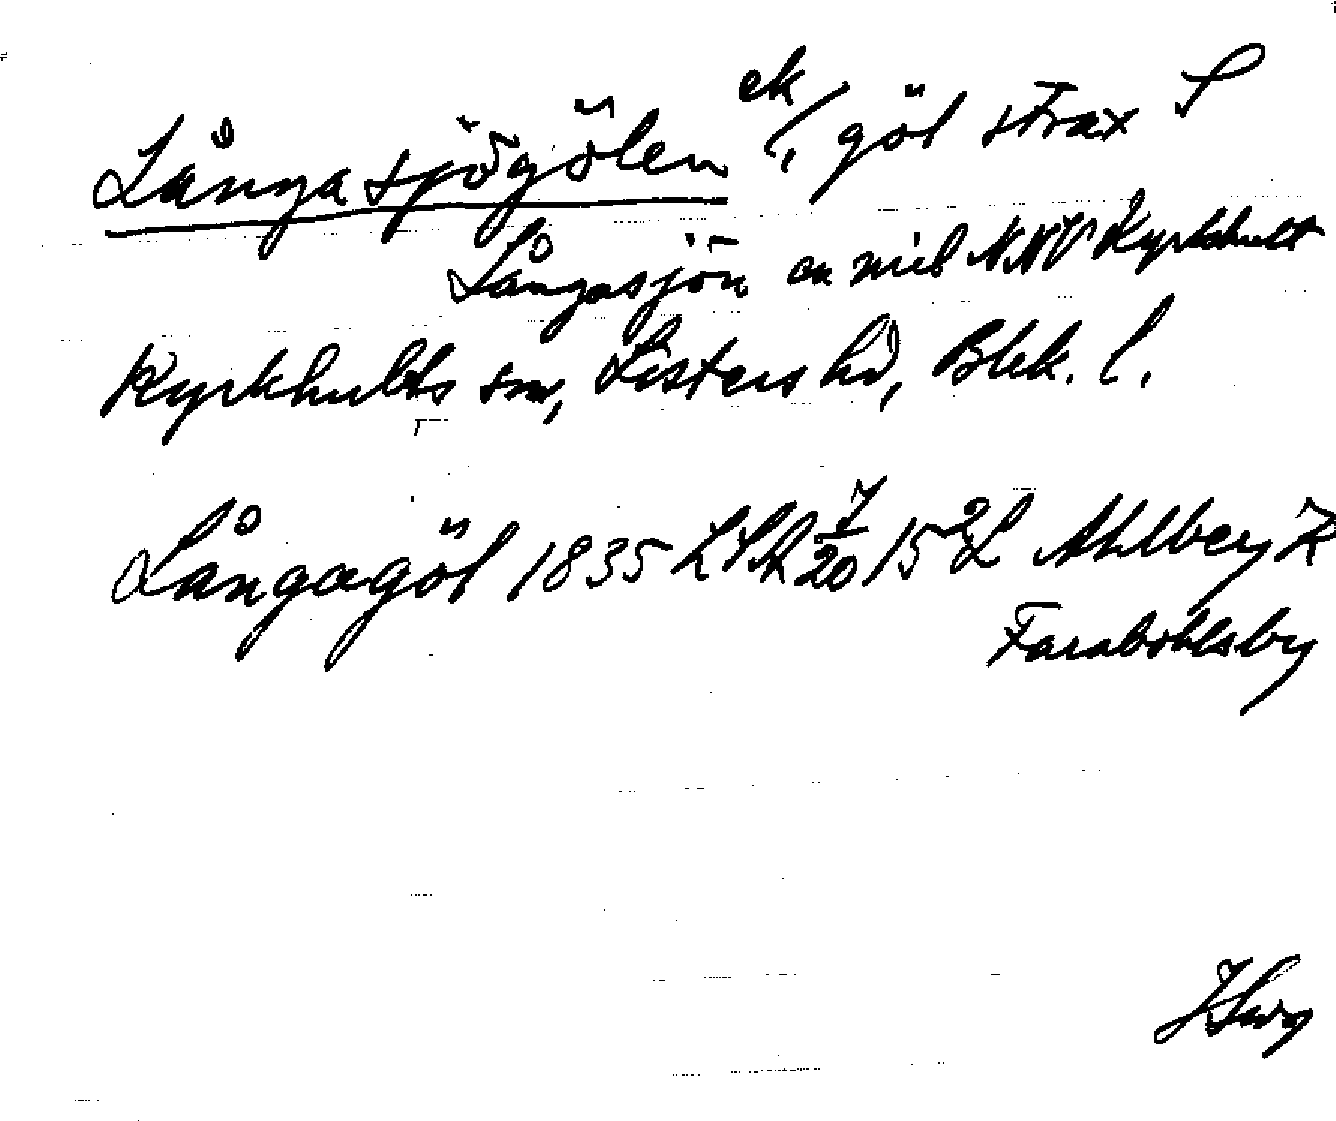 Långasjögölen ek l, göl strax S
Långasjön en mil NNV Kyrkhult
Kyrkhults sn, Listers hd, Blek. l.
Långagöl 1835 LSA 7/20 15 2L Ahlberg K
Farabohlsby